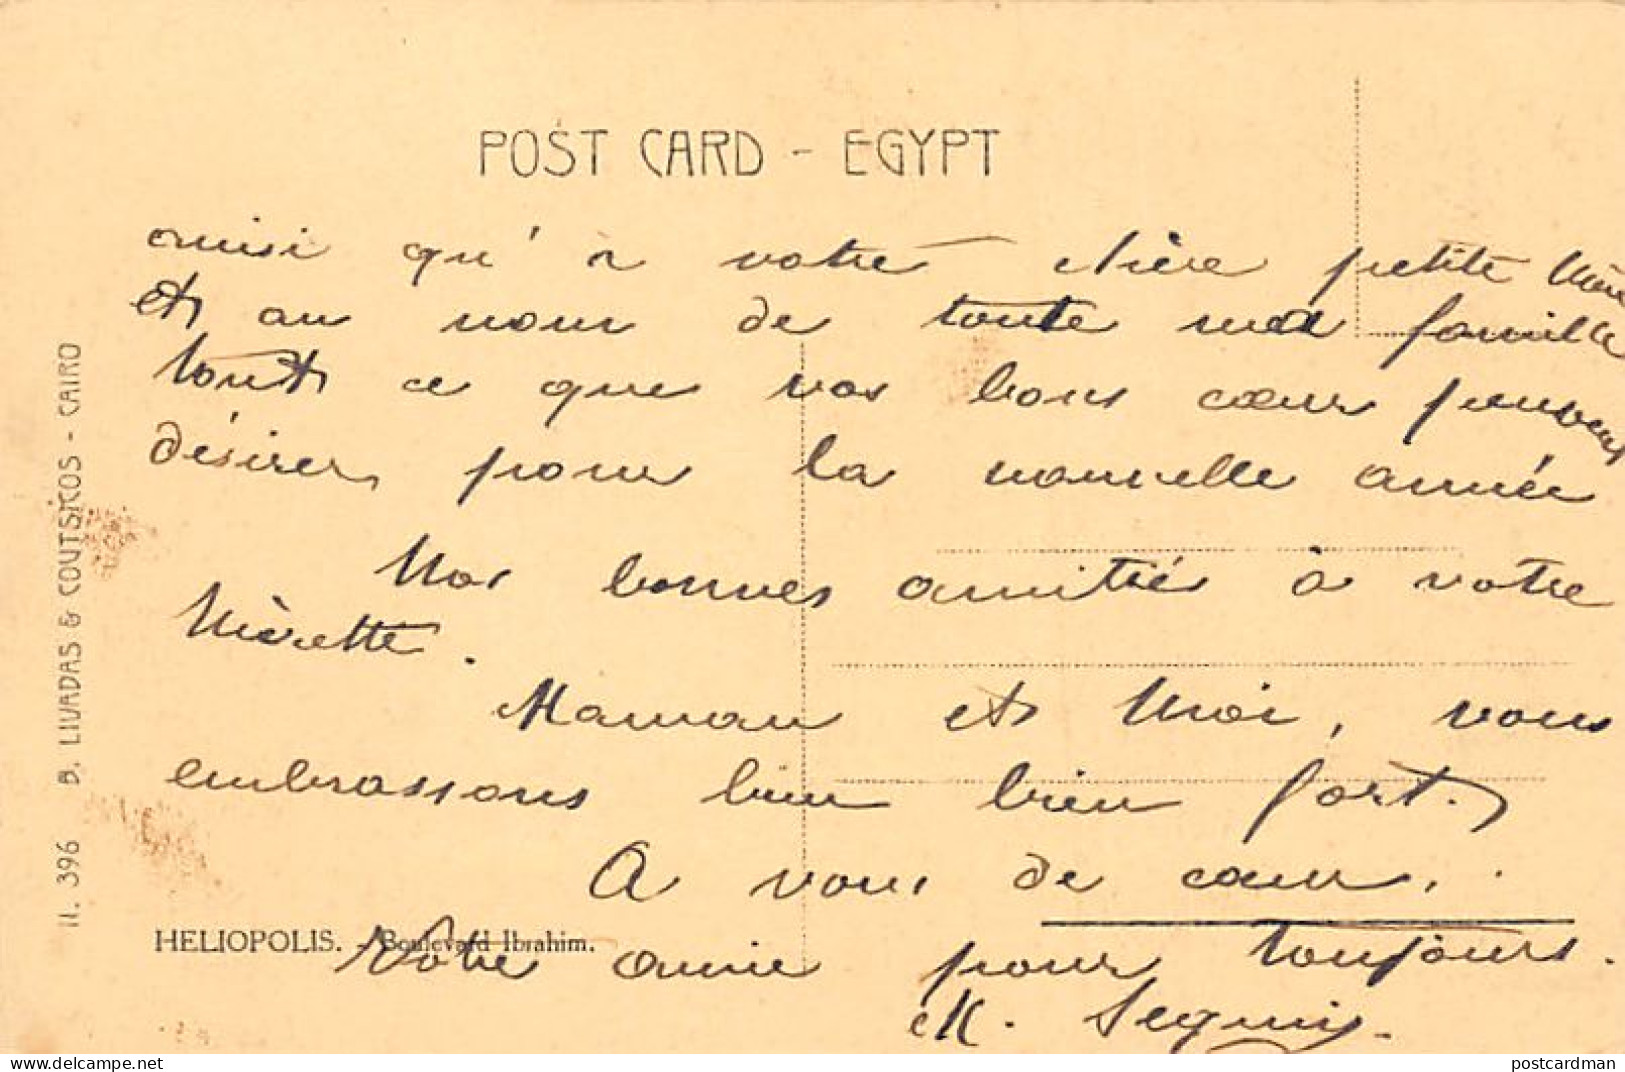 POST CARD - EGYPT
ainsi qu'à votre chère petite Mère
et au nom de toute ma famille
tout ce que vos bons cœurs peuvent
désirer pour la nouvelle année
Nos bonnes amitiés à votre
Mèrette.
Maman et Moi, vous
embrassons bien bien fort.
A vous de cœur.
Votre amie pour toujours.
M. Seguin.
HELIOPOLIS. - Boulevard Ibrahim.
N. 396 B. LIVADAS & COUTSICOS - CAIRO
postcardman